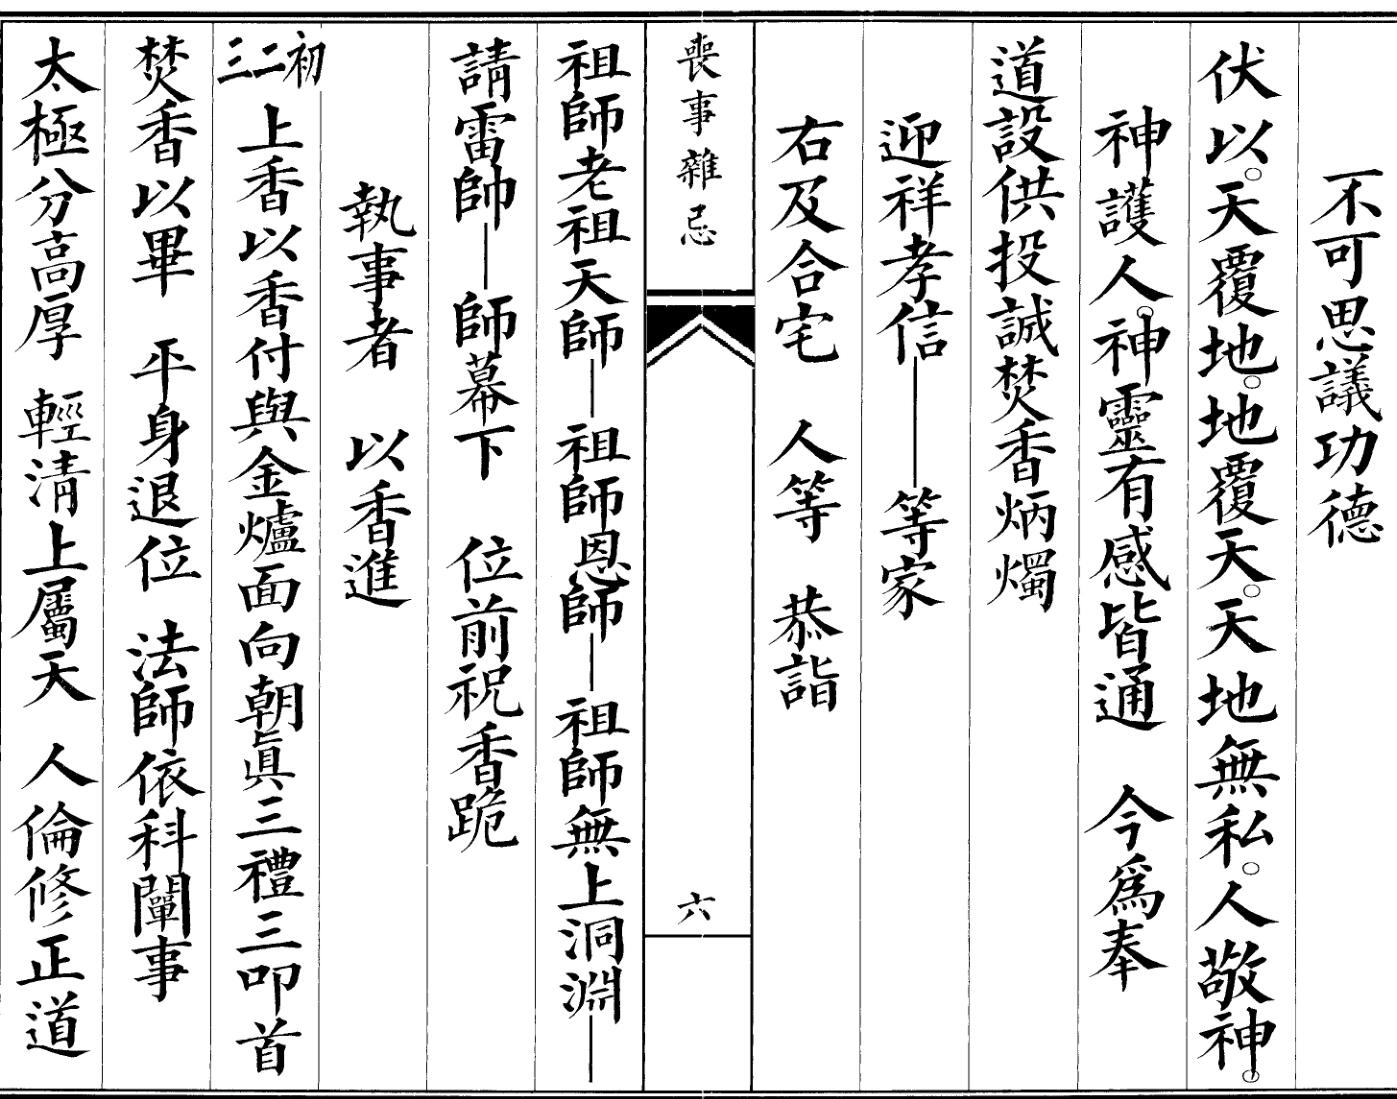 不可思議功德
伏以。天覆地。地覆天。天地無私。人敬神。
神護人。神靈有感皆通　今爲奉
道設供投誠焚香炳燭
迎祥孝信——等家
右及合宅　人等　恭詣
喪事雜忌　六
祖師老祖天師—祖師恩師—祖師無上洞淵—
請雷帥—師幕下　位前祝香跪
執事者　以香進
初二三上香以香付與金爐面向朝眞三禮三叩首
焚香以畢　平身退位　法師依科闡事
太極分高厚　輕清上屬天　人倫修正道